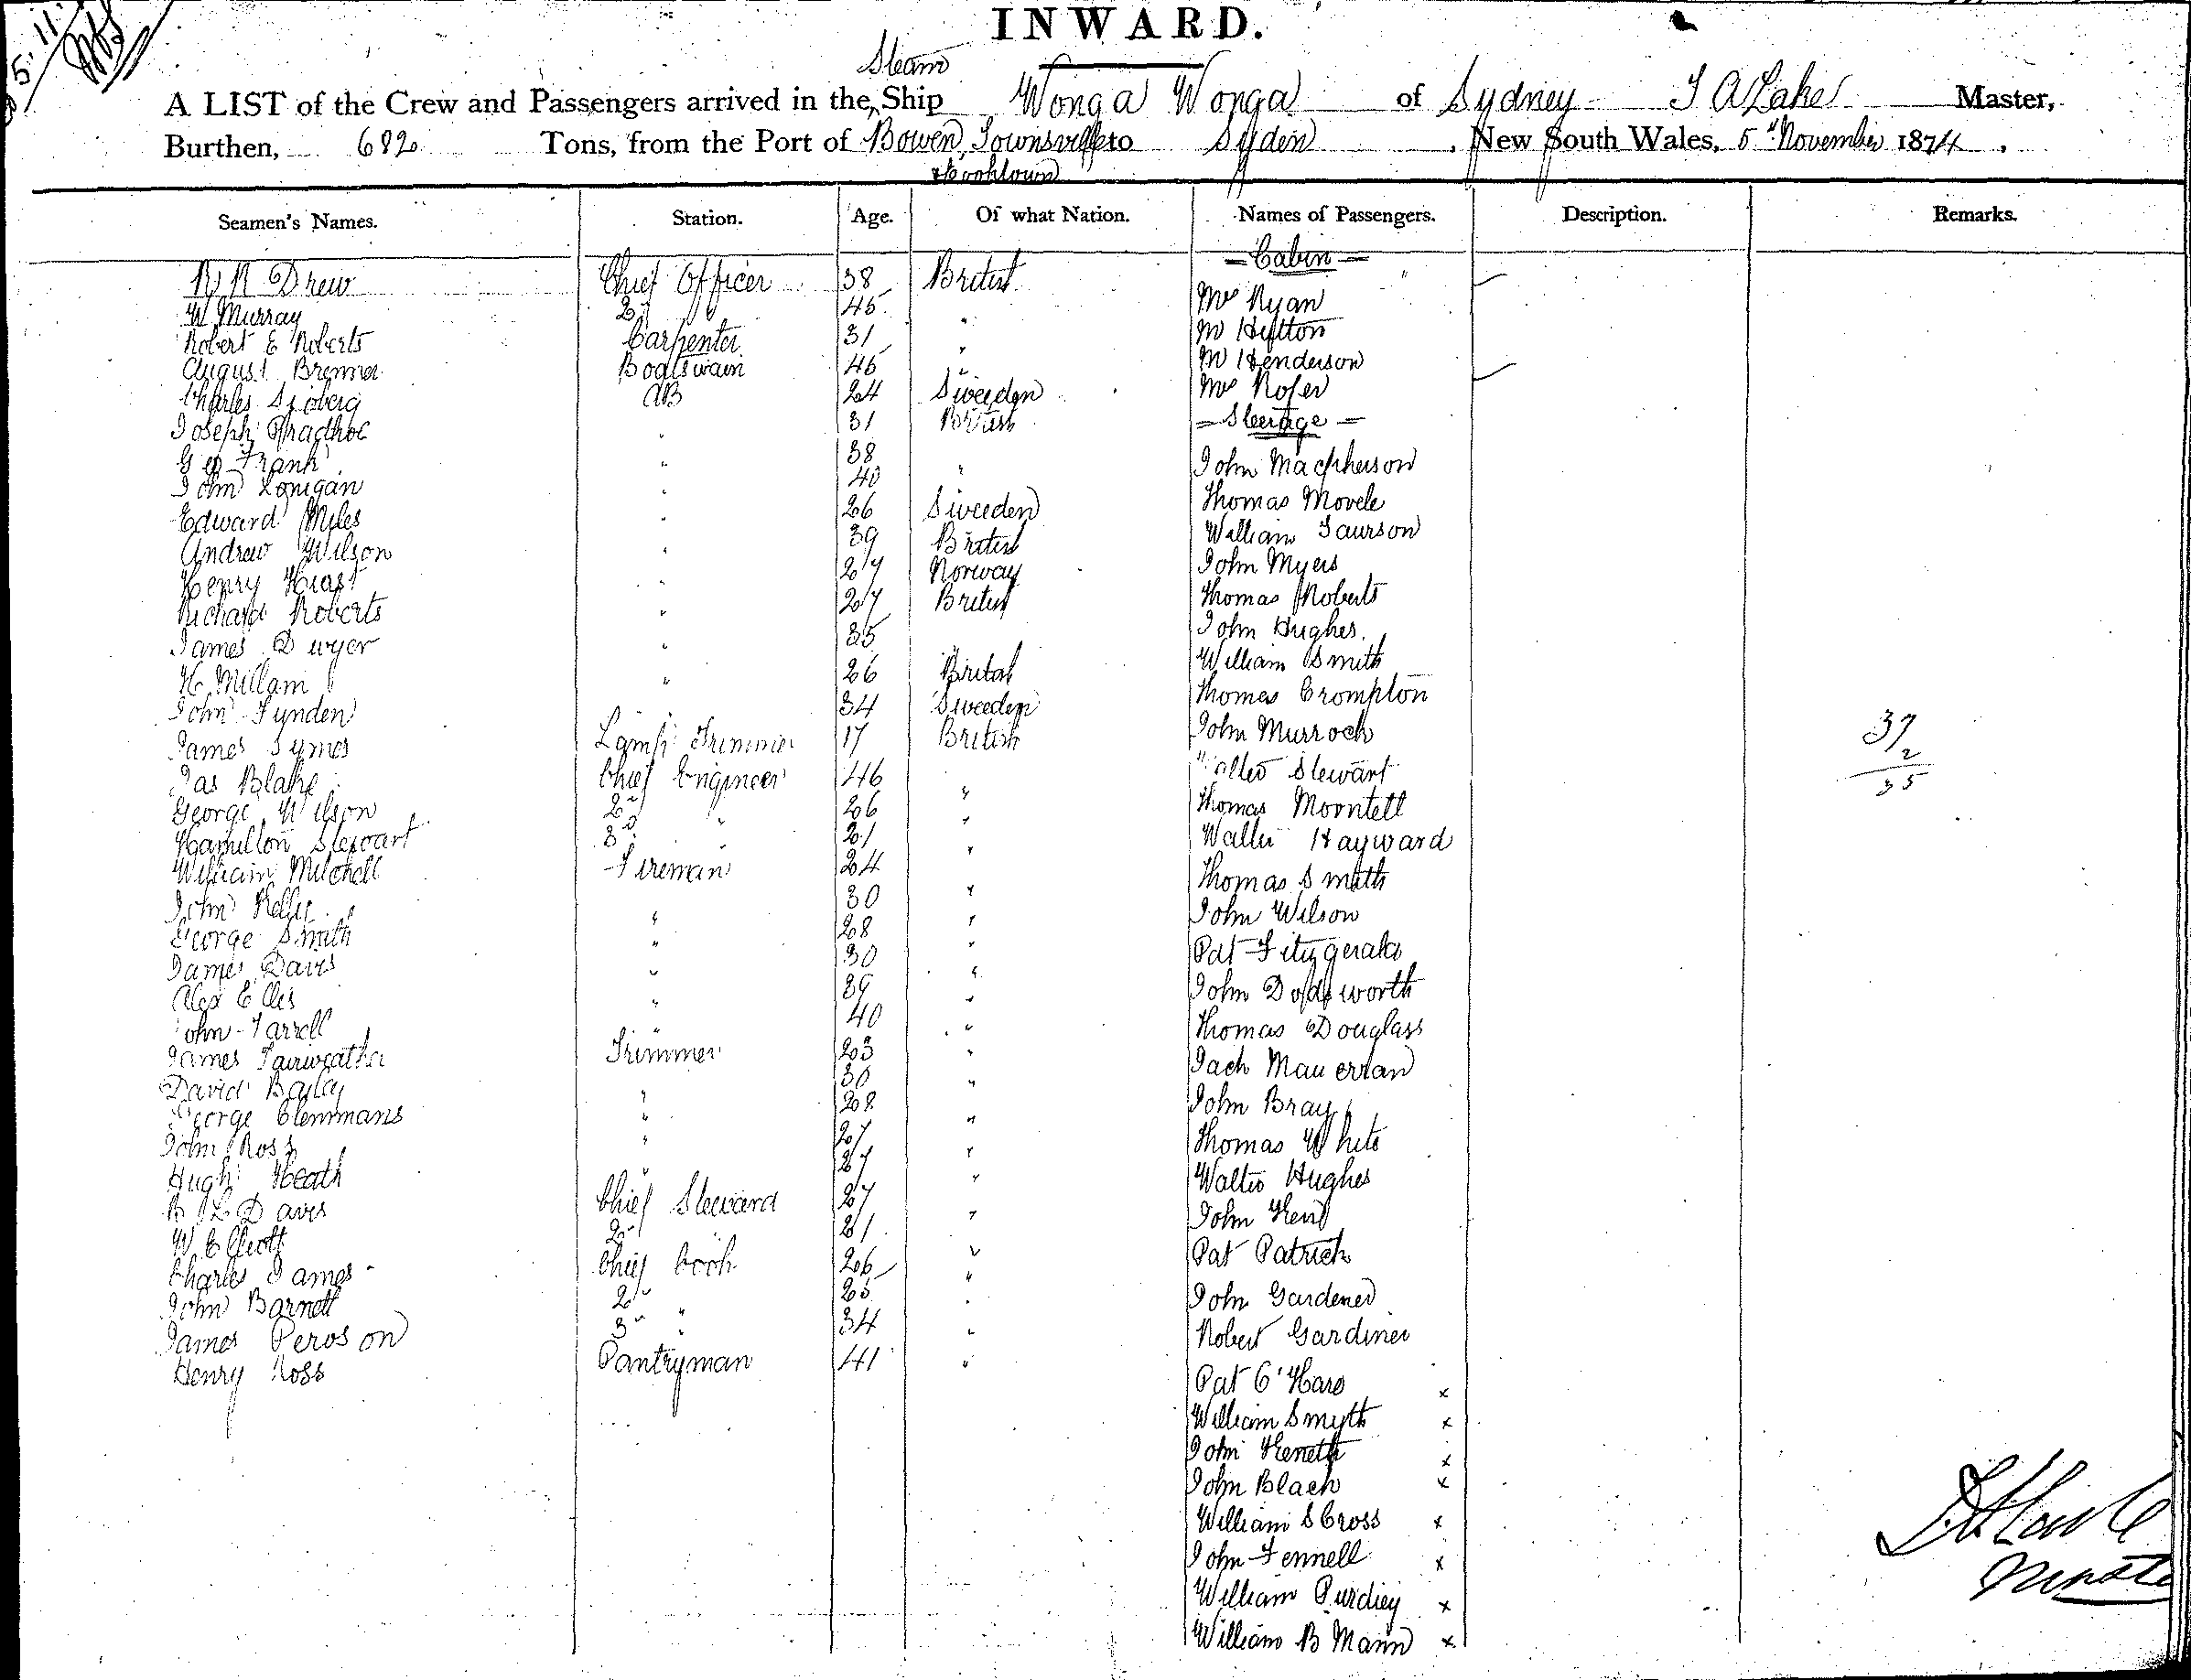 5.11.
INWARD.
Steam
A LIST of the Crew and Passengers arrived in the Ship Wonga Wonga of Sydney J A Lake Master,
Burthen, 682 Tons, from the Port of Bowen, Townsville to Sydney, New South Wales, 5th November 1874.
& Cooktown
Seamen's Names. Station. Age. Of what Nation. Names of Passengers. Description. Remarks.
— Cabin —
R R Drew Chief Officer 38 British
W Murray 2d " 45 " Mrs Ryan
Robert E Roberts Carpenter 31 " Mr
August Brenner Boatswain 46 " Mr Henderson
Charles Sjoberg AB 24 Sweeden Mrs
Joseph 31 British — Steerage —
Geo Frank " 38
John Lonigan " 40 " John Macpherson
Edward Miles " 26 Sweeden Thomas
Andrew Wilson " 39 British William
Henry " 27 Norway John Myers
Richard Roberts " 27 British Thomas Roberts
James Dwyer " 35 " John Hughes
H Millam " 26 British William Smith
John 34 Sweeden Thomas Crompton
James Symes Lamp Trimmer 17 British John Murroch
Jas Blake Chief Engineer 46 " Walter Stewart
George Wilson 2d " 26 " Thomas
Hamilton Stewart 3d " 21 " Walter Hayward
William Mitchell Fireman 24 " Thomas Smith
John " 30 " John Wilson
George Smith " 28 " Pat Fitzgerald
James Davis " 30 " John Dodsworth
Alex Ellis " 39 " Thomas Douglass
John Farrell " 40 " Jack
James Fairweather Trimmer 23 " John Bray
David Bailey " 30 " Thomas White
George Clemmans " 28 " Walter Hughes
John Ross " 27 " John
Hugh Heath " 27 " Pat Patrick
R L Davis Chief Steward 27 " John Gardener
W Elliott 2d 21 " Robert Gardiner
Charles James Chief Cook 26 " Pat O'Hara x
John Barnett 2d " 25 " William Smyth x
James Peroson 3d " 34 " John Keneth x
Henry Ross Pantryman 41 " John Black x
William S Cross x
John Fennell x
William Purdiey x
William B Mann x
37
2
35